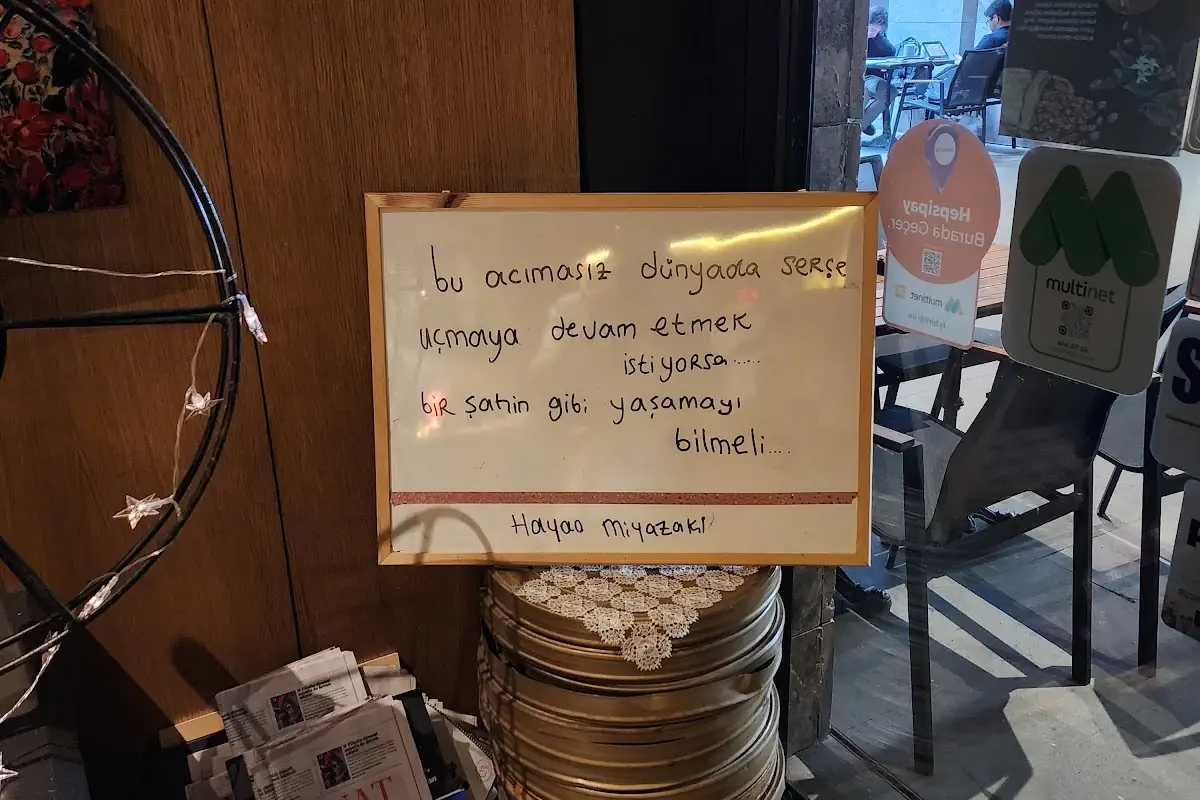 bu acımasız dünyada serçe
uçmaya devam etmek
istiyorsa.....
bir şahin gibi yaşamayı
bilmeli....
Hayao Miyazaki
Hepsipay
Burada Geçer.
multinet
multinet